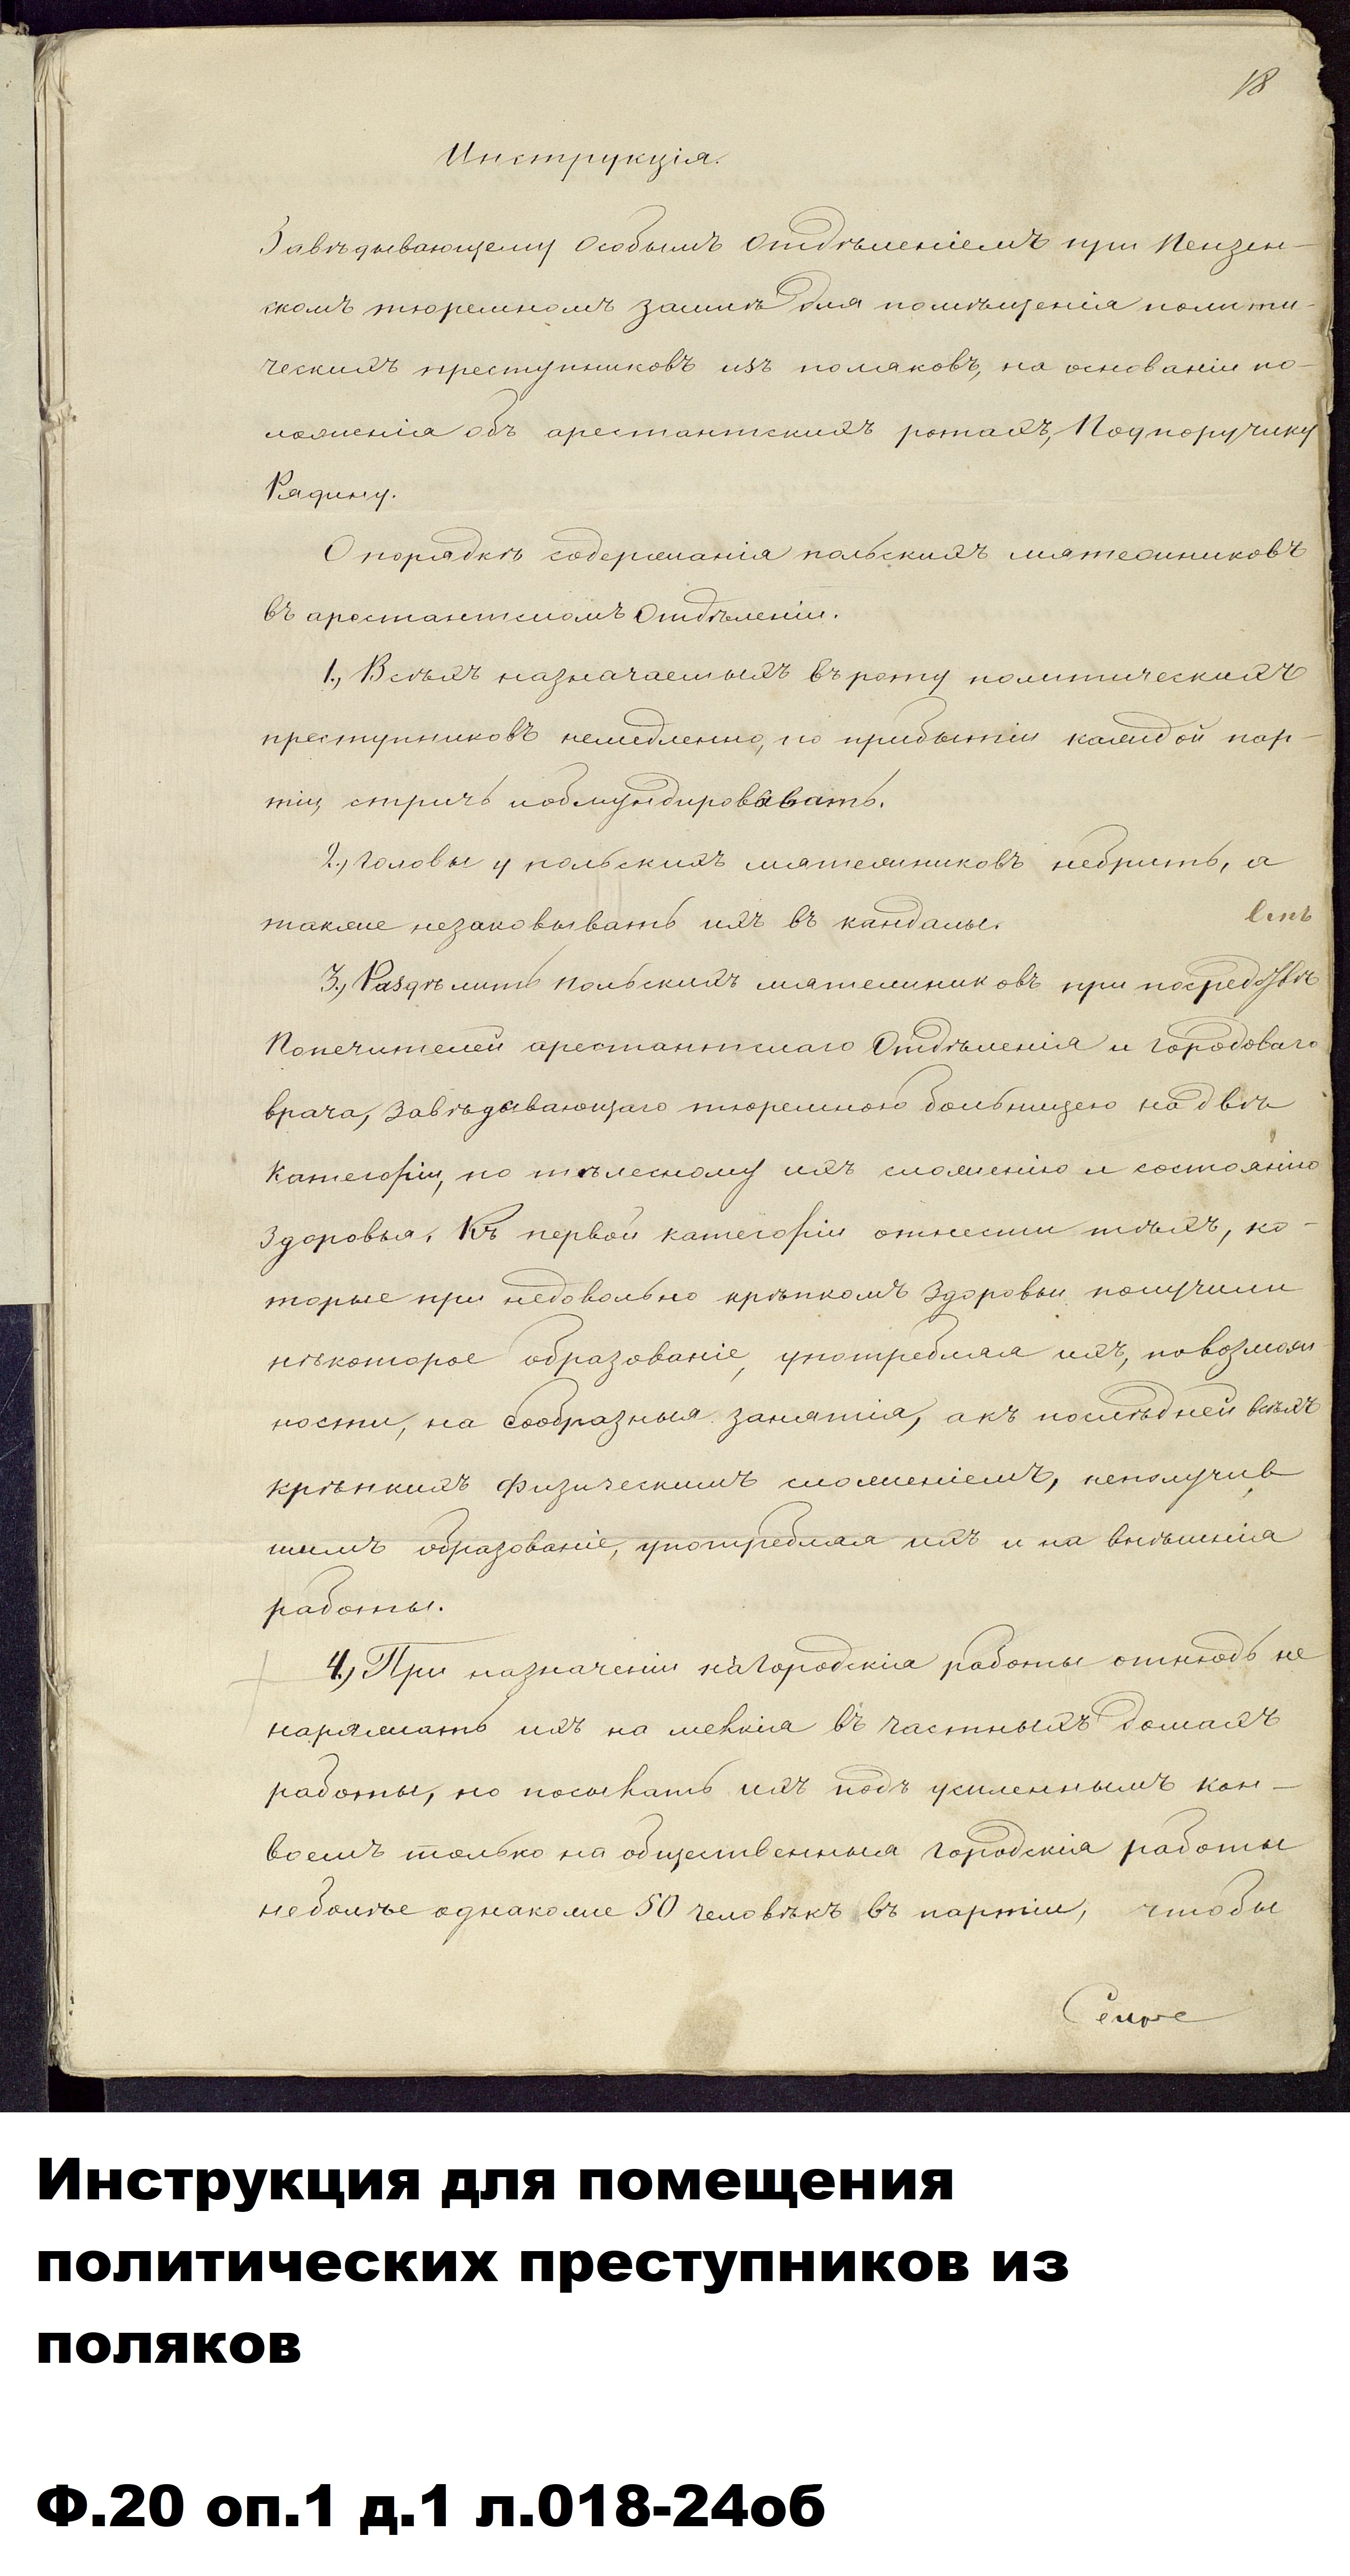 18
Инструкція.
Завѣдывающему Особымъ Отдѣленіемъ при Пензен-
скомъ тюремномъ замкѣ для помѣщенія полити-
ческихъ преступниковъ изъ поляковъ, на основаніи по-
ложенія объ арестантскихъ ротахъ, Подпоручику
Рядину.
О порядкѣ содержанія польскихъ мятежниковъ
въ арестантскомъ Отдѣленіи.
1., Всѣхъ назначаемыхъ въ роту политическихъ
преступниковъ немедленно, по прибытіи каждой пар-
тіи, стричь и обмундировывать.
2., Головы у польскихъ мятежниковъ небрить, а
также незаковывать ихъ въ кандалы.
3., Раздѣлить польскихъ мятежниковъ при посредствѣ
Попечителей арестантскаго Отдѣленія и городоваго
врача, завѣдывающаго тюремною больницею на двѣ
категоріи, по тѣлесному ихъ сложенію и состоянію
здоровья. Къ первой категоріи отнести тѣхъ, ко-
торые при недовольно крѣпкомъ здоровьи получили
нѣкоторое образованіе, употребляя ихъ, по возмож-
ности, на сообразныя занятія, а къ послѣдней всѣхъ
крѣпкихъ физическимъ сложеніемъ, неполучив
шимъ образованіе, употребляя ихъ и на внѣшнія
работы.
4., При назначеніи на городскія работы отнюдь не
наряжать ихъ на мелкія въ частныхъ домахъ
работы, но посылать ихъ подъ усиленнымъ кон-
воемъ только на общественныя городскія работы
неболѣе однакоже 50 человѣкъ въ партіи, чтобы
Инструкция для помещения
политических преступников из
поляков
Ф.20 оп.1 д.1 л.018-24об